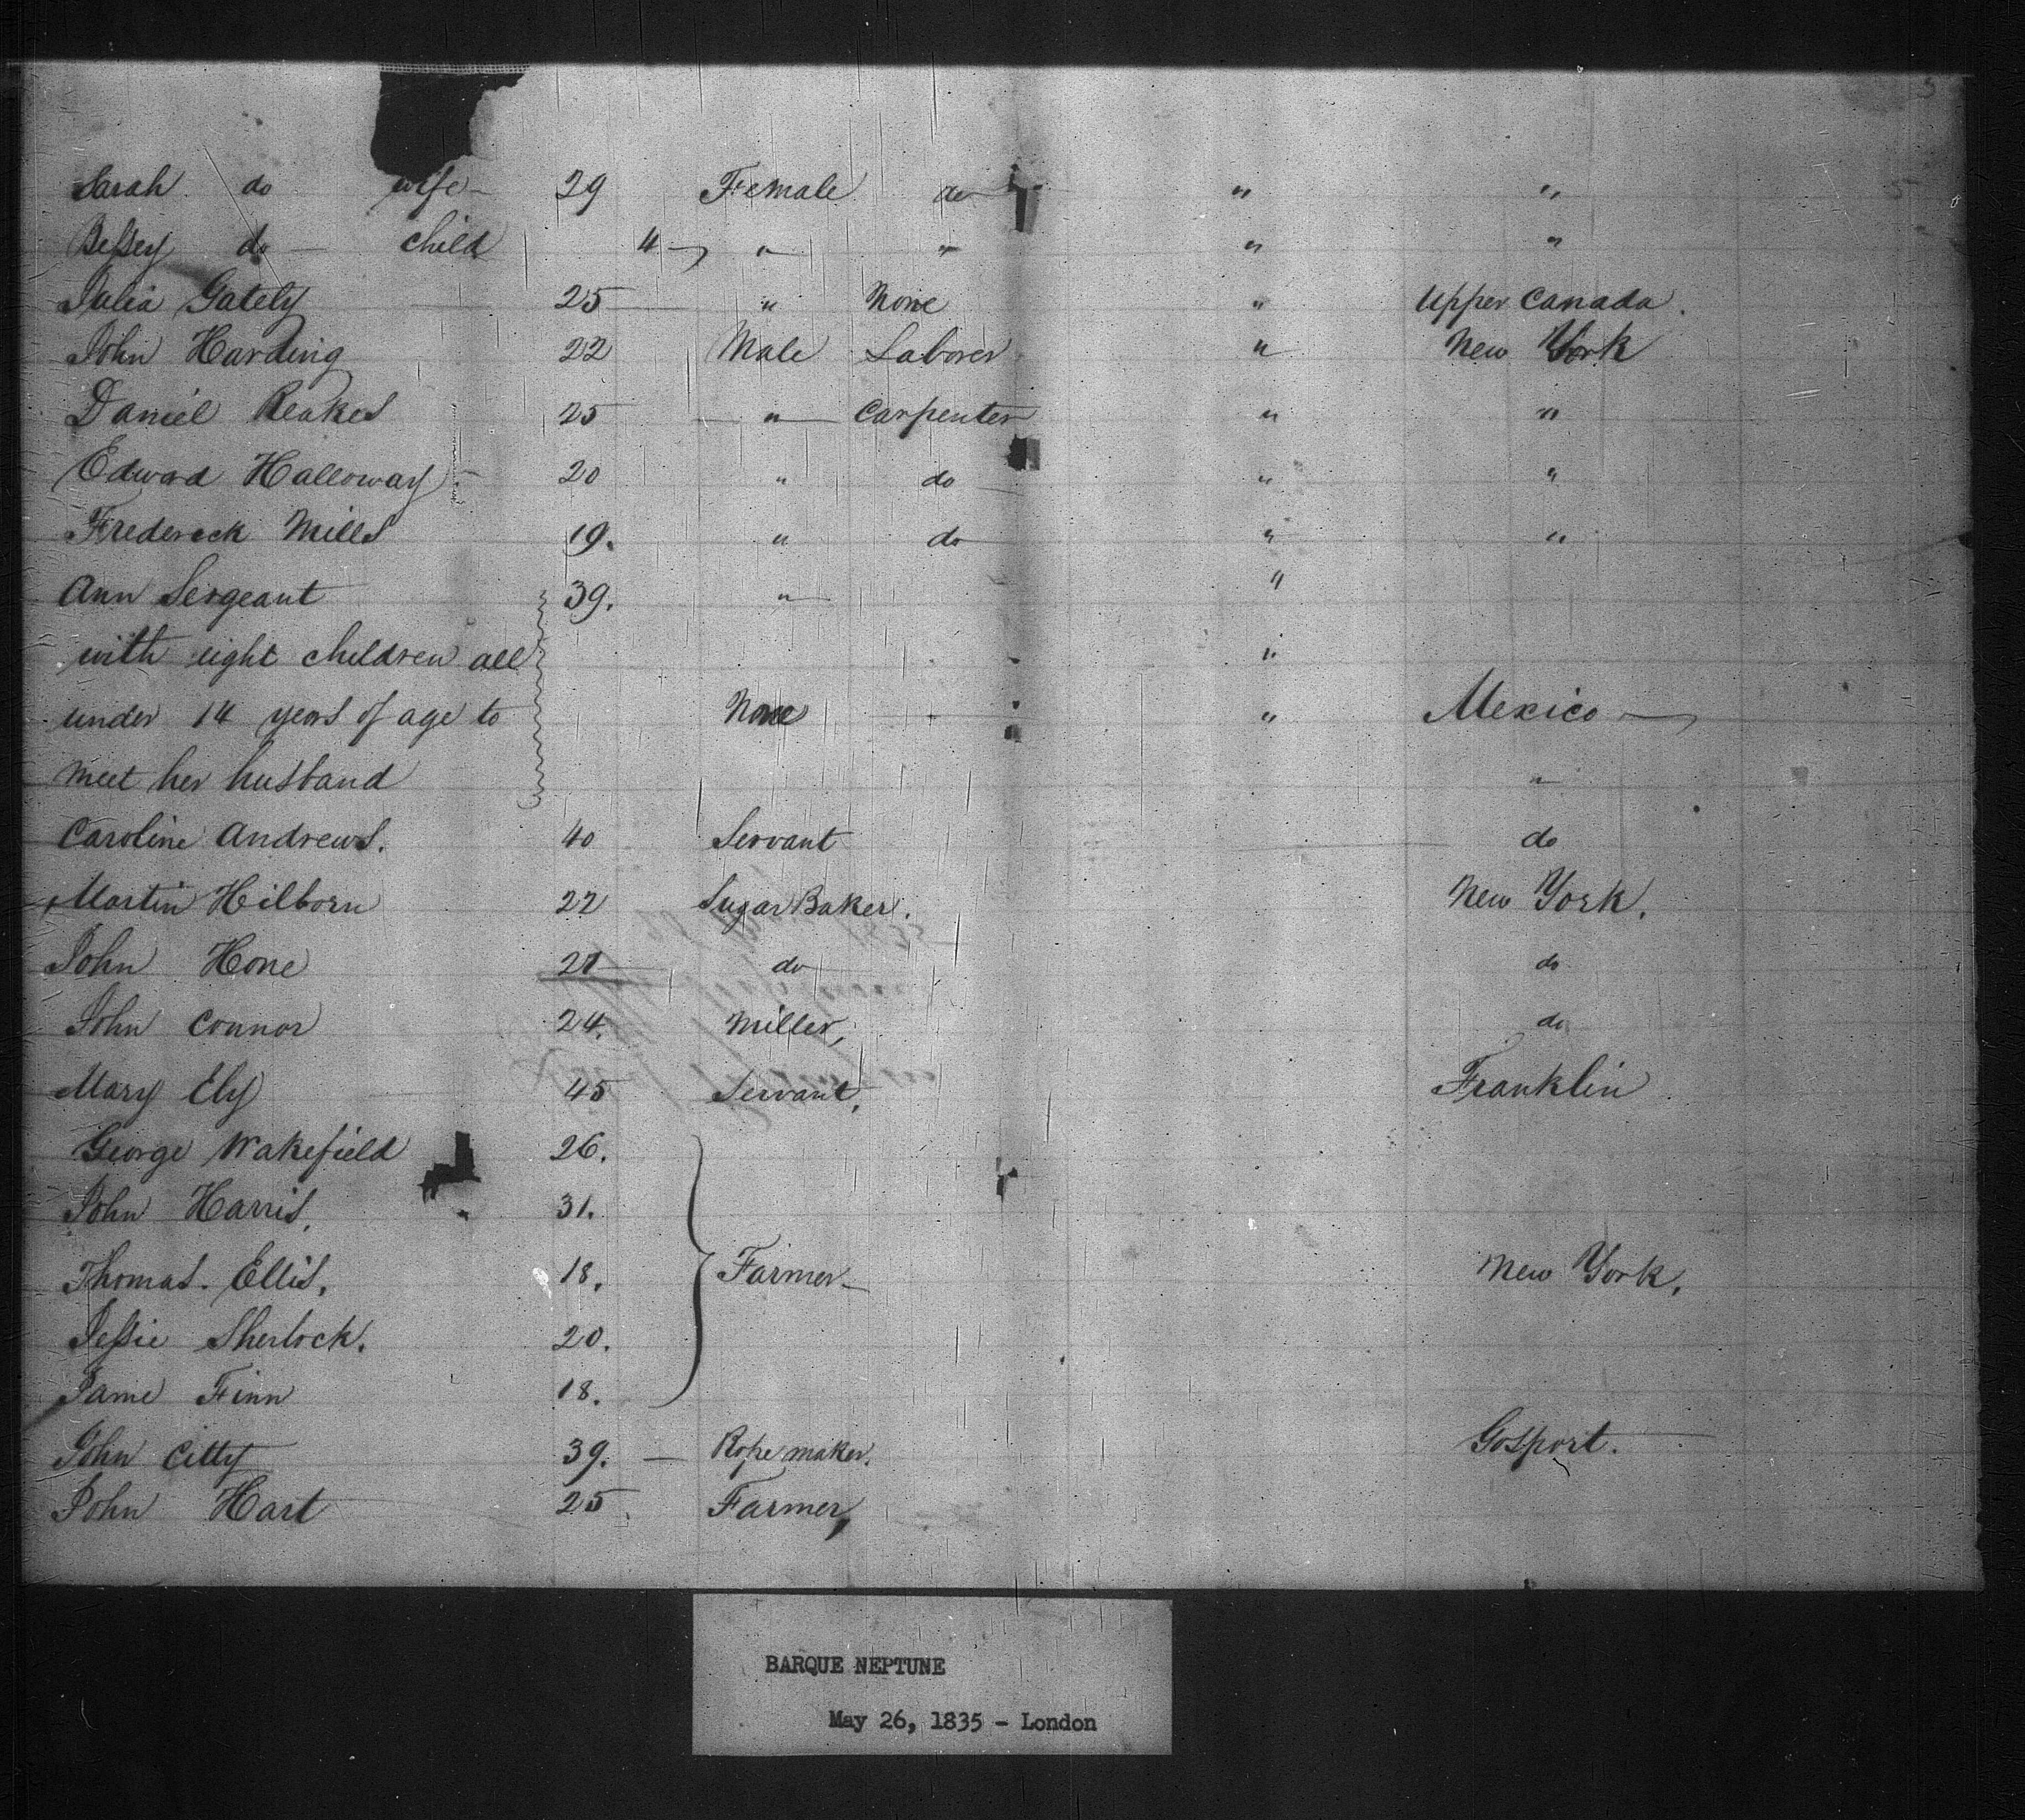 Sarah do wife 29 Female do " "
Bessey do child 4 " " " "
Julia Gately 25 " None " Upper Canada.
John Harding 22 Male Laborer " New York
Daniel Reakes 25 " Carpenter " "
Edward Halloway 20 " do " "
Frederick Mills 19. " do " "
Ann Sergeant 39. " "
with eight children all "
under 14 years of age to None " Mexico
meet her husband "
Caroline Andrews. 40 Servant do
Martin Hilborn 22 Sugar Baker. New York.
John Hone 21 do do
John Connor 24. Miller, do
Mary Ely 45 Servant, Franklin
George Wakefield 26.
John Harris, 31.
Thomas. Ellis, 18. Farmer New York.
Jessie Sherlock. 20.
Jame Finn 18.
John Citty 39. Rope maker. Gosport.
John Hart 25. Farmer,
BARQUE NEPTUNE
May 26, 1835 - London